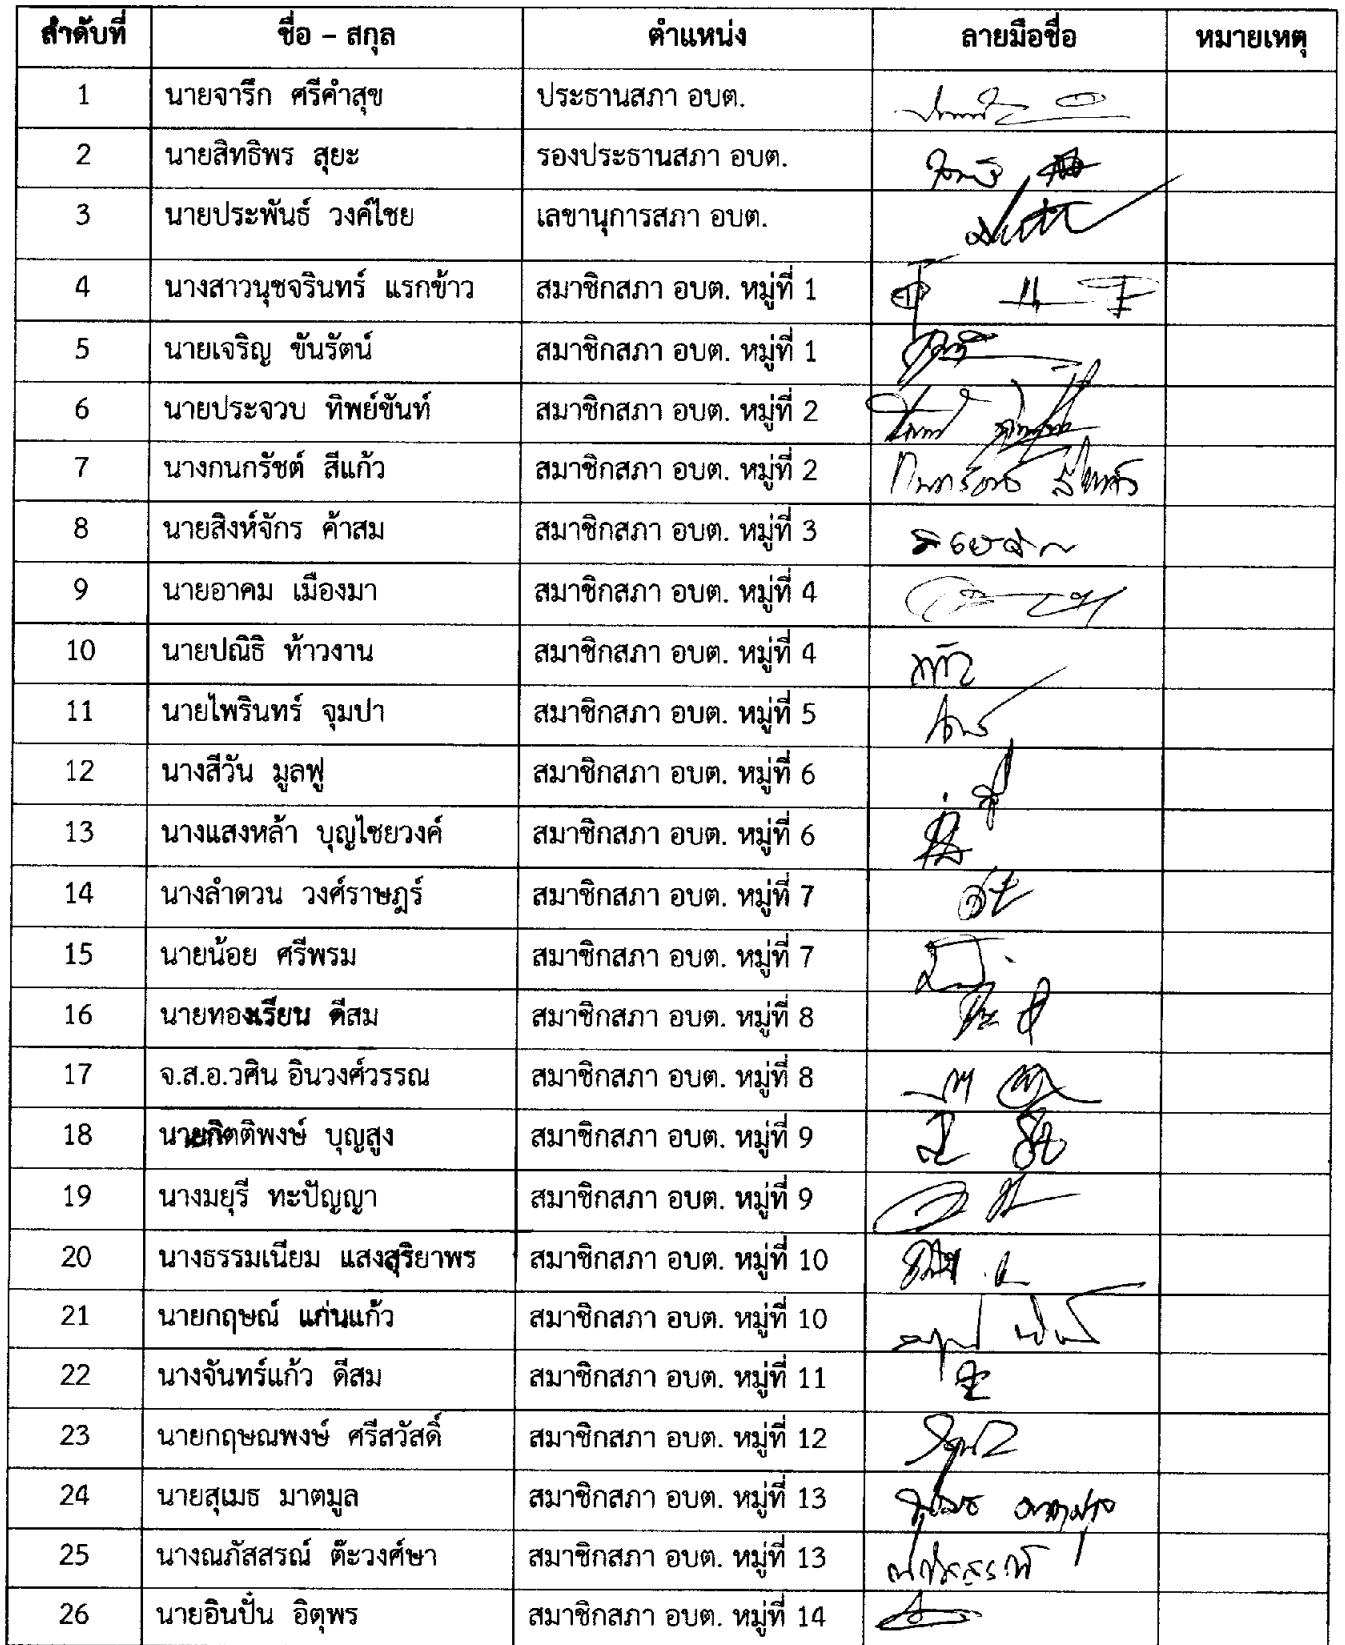 ลำดับที่ ชื่อ – สกุล ตำแหน่ง ลายมือชื่อ หมายเหตุ
1 นายจารึก ศรีคำสุข ประธานสภา อบต.
2 นายสิทธิพร สุยะ รองประธานสภา อบต.
3 นายประพันธ์ วงค์ไชย เลขานุการสภา อบต.
4 นางสาวนุชจรินทร์ แรกข้าว สมาชิกสภา อบต. หมู่ที่ 1
5 นายเจริญ ขันรัตน์ สมาชิกสภา อบต. หมู่ที่ 1
6 นายประจวบ ทิพย์ขันท์ สมาชิกสภา อบต. หมู่ที่ 2
7 นางกนกรัชต์ สีแก้ว สมาชิกสภา อบต. หมู่ที่ 2 กนกรัชต์ สีแก้ว
8 นายสิงห์จักร ค้าสม สมาชิกสภา อบต. หมู่ที่ 3
9 นายอาคม เมืองมา สมาชิกสภา อบต. หมู่ที่ 4
10 นายปณิธิ ท้าวงาน สมาชิกสภา อบต. หมู่ที่ 4
11 นายไพรินทร์ จุมปา สมาชิกสภา อบต. หมู่ที่ 5
12 นางสีวัน มูลฟู สมาชิกสภา อบต. หมู่ที่ 6
13 นางแสงหล้า บุญไชยวงค์ สมาชิกสภา อบต. หมู่ที่ 6
14 นางลำดวน วงศ์ราษฎร์ สมาชิกสภา อบต. หมู่ที่ 7
15 นายน้อย ศรีพรม สมาชิกสภา อบต. หมู่ที่ 7
16 นายทองเรียน ดีสม สมาชิกสภา อบต. หมู่ที่ 8
17 จ.ส.อ.วศิน อินวงศ์วรรณ สมาชิกสภา อบต. หมู่ที่ 8
18 นายกิตติพงษ์ บุญสูง สมาชิกสภา อบต. หมู่ที่ 9
19 นางมยุรี ทะปัญญา สมาชิกสภา อบต. หมู่ที่ 9
20 นางธรรมเนียม แสงสุริยาพร สมาชิกสภา อบต. หมู่ที่ 10
21 นายกฤษณ์ แก่นแก้ว สมาชิกสภา อบต. หมู่ที่ 10
22 นางจันทร์แก้ว ดีสม สมาชิกสภา อบต. หมู่ที่ 11
23 นายกฤษณพงษ์ ศรีสวัสดิ์ สมาชิกสภา อบต. หมู่ที่ 12
24 นายสุเมธ มาตมูล สมาชิกสภา อบต. หมู่ที่ 13 สุเมธ มาตมูล
25 นางณภัสสรณ์ ต๊ะวงศ์ษา สมาชิกสภา อบต. หมู่ที่ 13 ณภัสสรณ์
26 นายอินปั๋น อิตุพร สมาชิกสภา อบต. หมู่ที่ 14